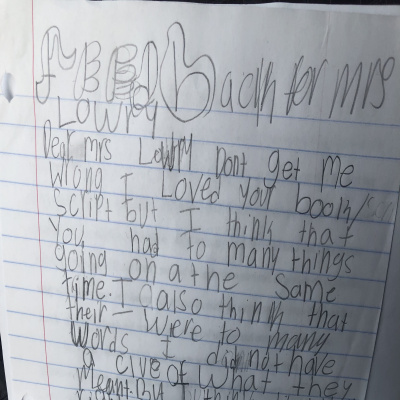 FEEdback for mrs
Lowry
Dear mrs Lowry Dont get me
wrong I Loved your book/
script but I think that
you had to many things
going on a the same
time. I also think that
their were to many
words I did not have
a clue of what they
Meant by I think